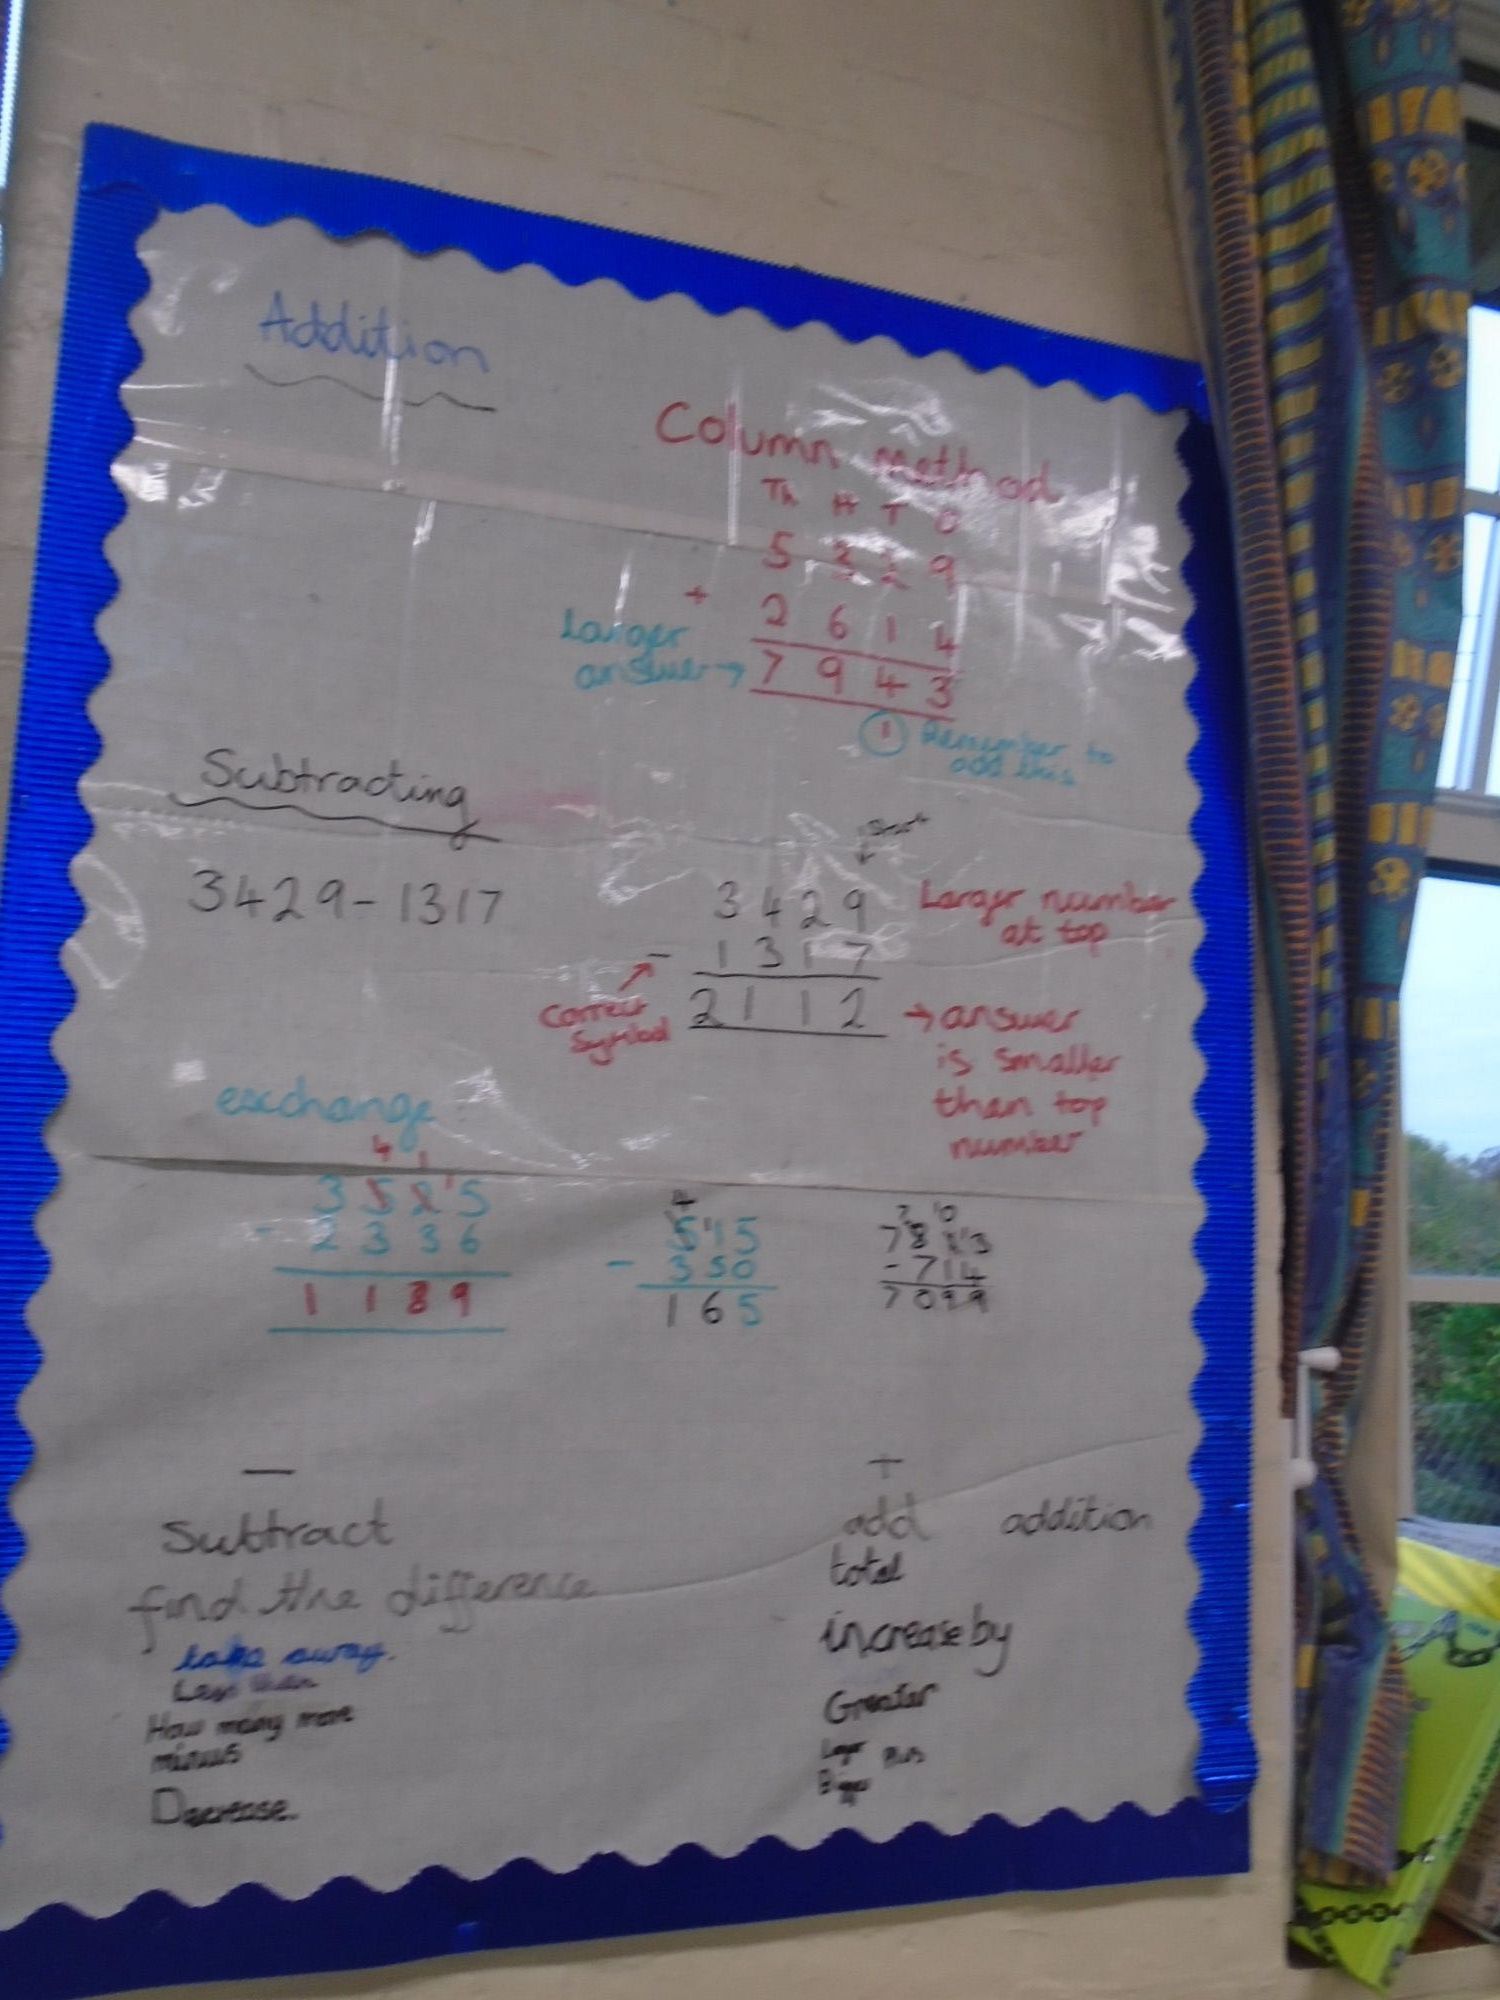 Addition
Column method
Th H T O
5 3 2 9
+ 2 6 1 4
Larger
answer → 7 9 4 3
1 Remember to
add this
Subtracting
3429 - 1317
Start
3 4 2 9 Larger number
at top
- 1 3 1 7
correct
symbol
2 1 1 2 → answer
is smaller
than top
number
exchange
4 1
3 5 2 15
- 2 3 3 6
1 1 8 9
4
5 1 1 5
- 3 5 0
1 6 5
7 10
7 8 1 13
- 7 1 4
7 0 9 9
-
Subtract
find the difference
take away.
Less than
How many more
minus
Decrease.
+
add addition
total
increase by
Greater
Plus